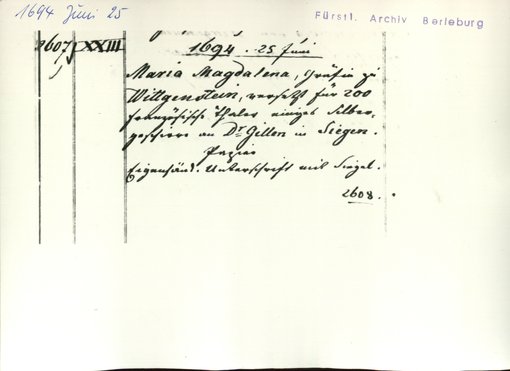 1694 Juni 25
Fürstl. Archiv Berleburg
2607 XXIII
1694. 25. Juni
Maria Magdalena, Gräfin zu
Wittgenstein, versetzt für 200
französische Thaler einiges Silber-
geschirr an Dr Gellen in Siegen.
Papier
Eigenhänd. Unterschrift mit Siegel.
2608.